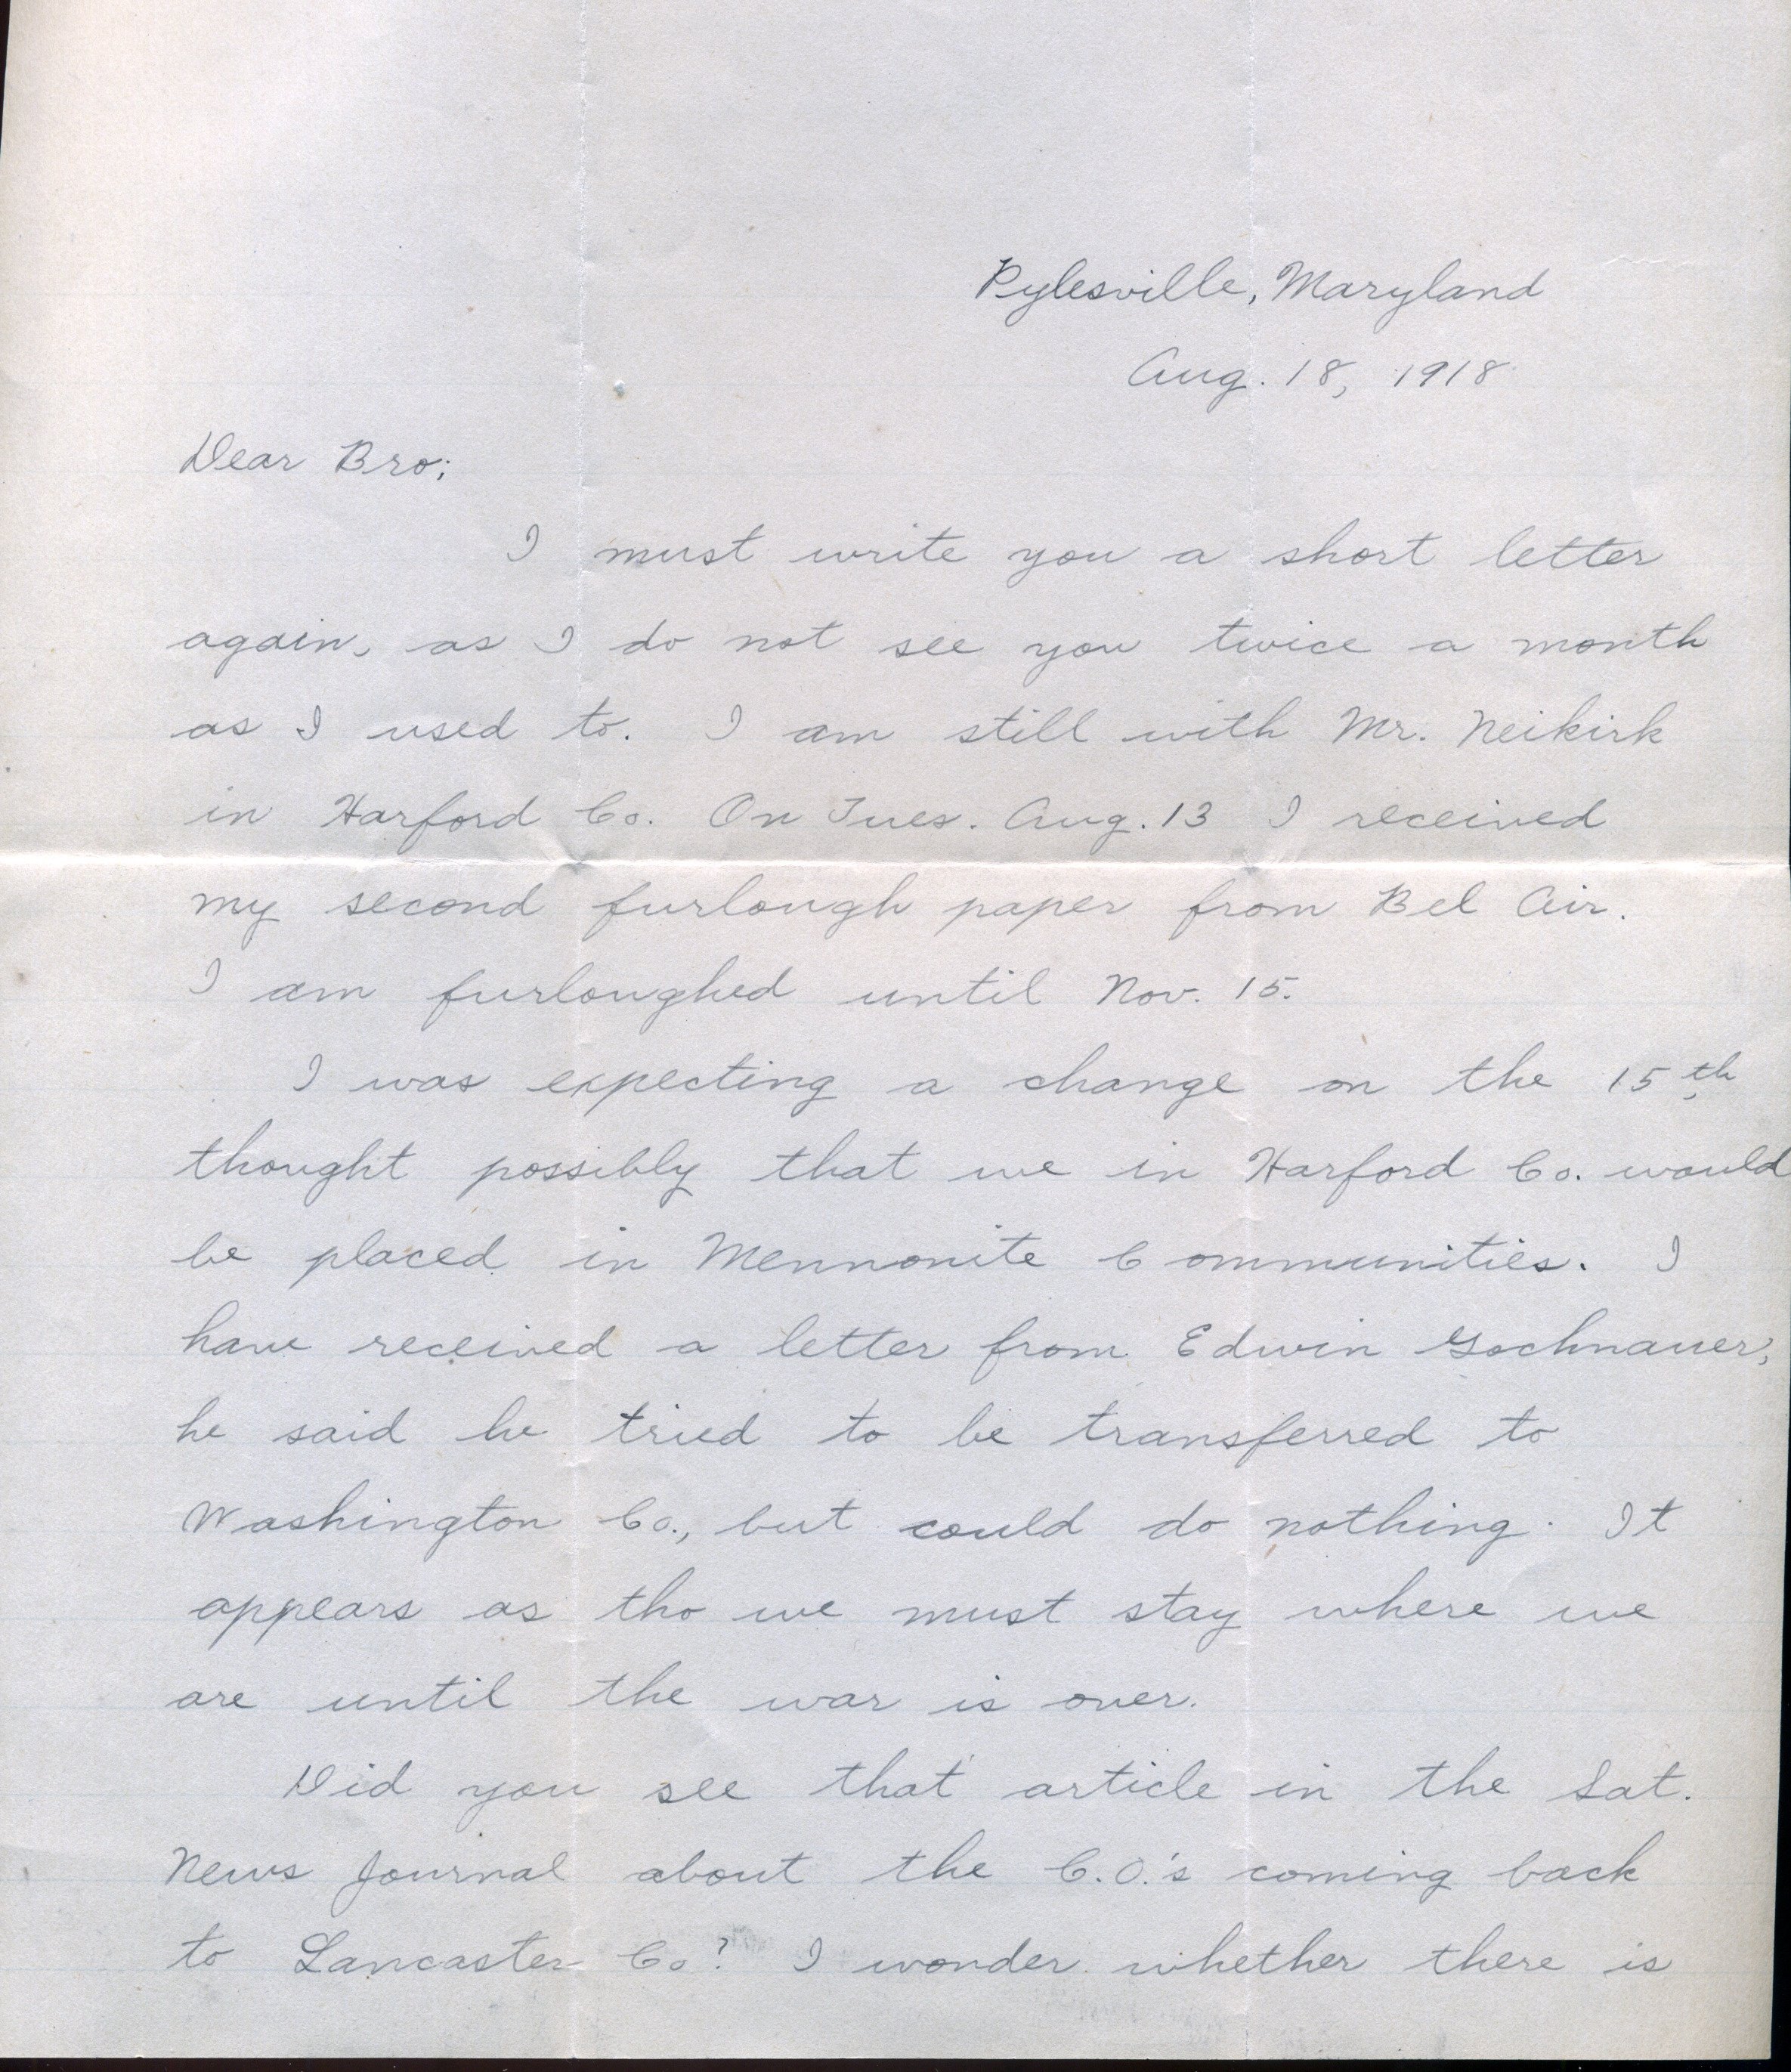 Pylesville, Maryland
Aug. 18, 1918
Dear Bro;
I must write you a short letter
again, as I do not see you twice a month
as I used to. I am still with Mr. Neikirk
in Harford Co. On Tues. Aug. 13 I received
my second furlough paper from Bel Air.
I am furloughed until Nov. 15.
I was expecting a change on the 15th,
thought possibly that we in Harford Co. would
be placed in Mennonite Communities. I
have received a letter from Edwin Gochnauer,
he said he tried to be transferred to
Washington Co., but could do nothing. It
appears as tho we must stay where we
are until the war is over.
Did you see that article in the Sat.
News Journal about the C.O.'s coming back
to Lancaster Co? I wonder whether there is